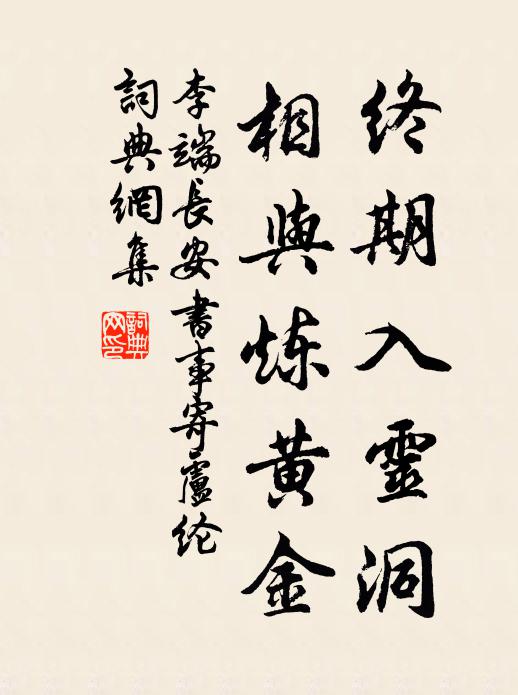 終期入靈洞
相與炼黄金
李端長安書事寄盧纶
詞典網集
詞典網印